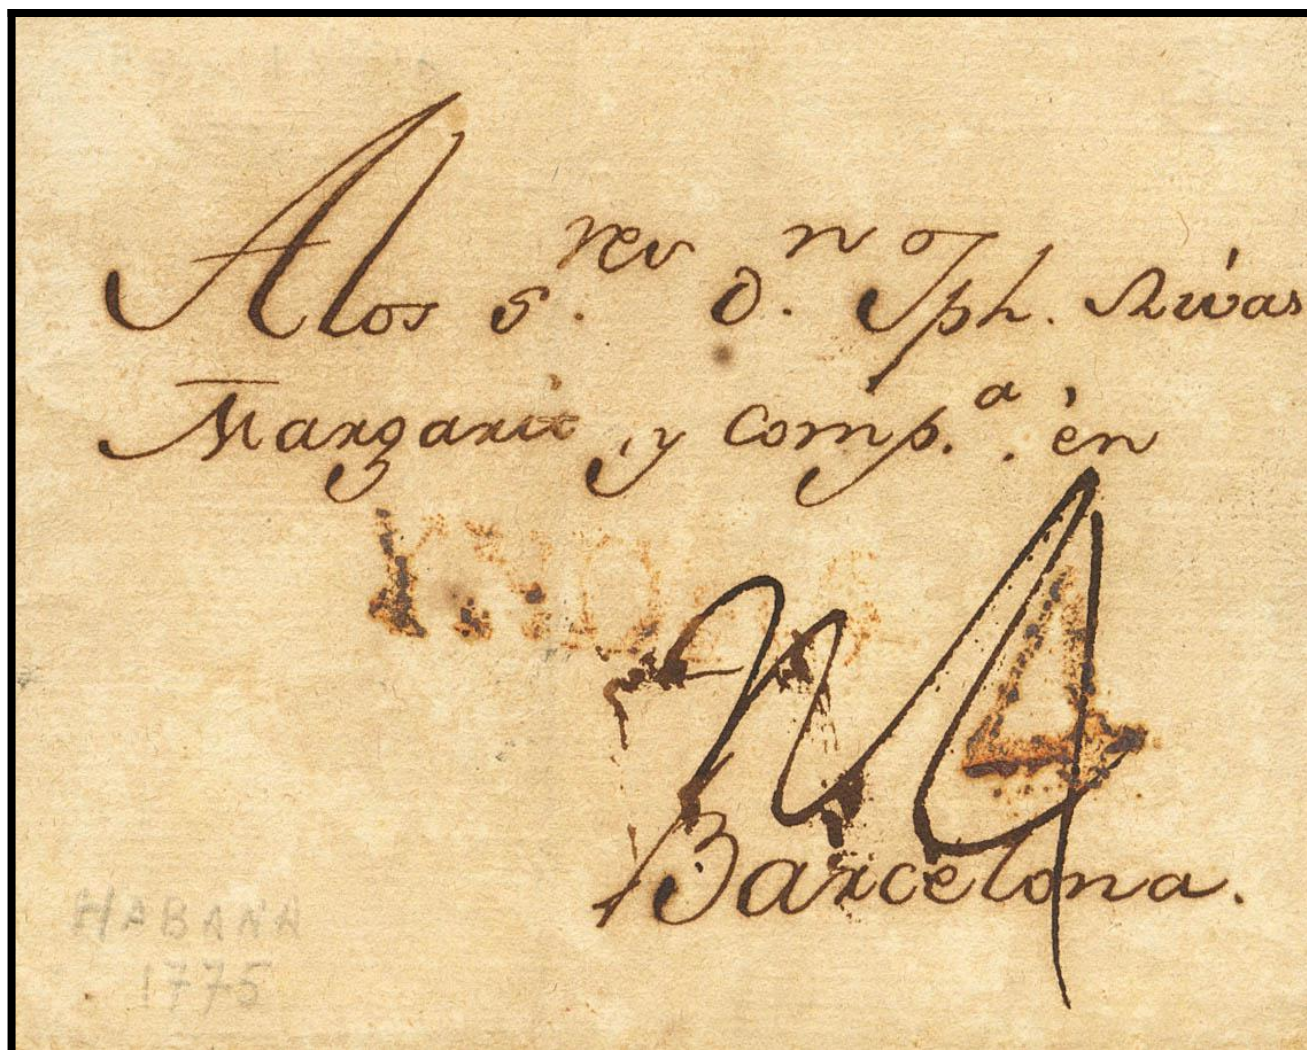 A los S.res D.n Jph. Rivas
Margarit, y Comp.a en
YNDIAS
4
Barcelona.
HABANA
1775